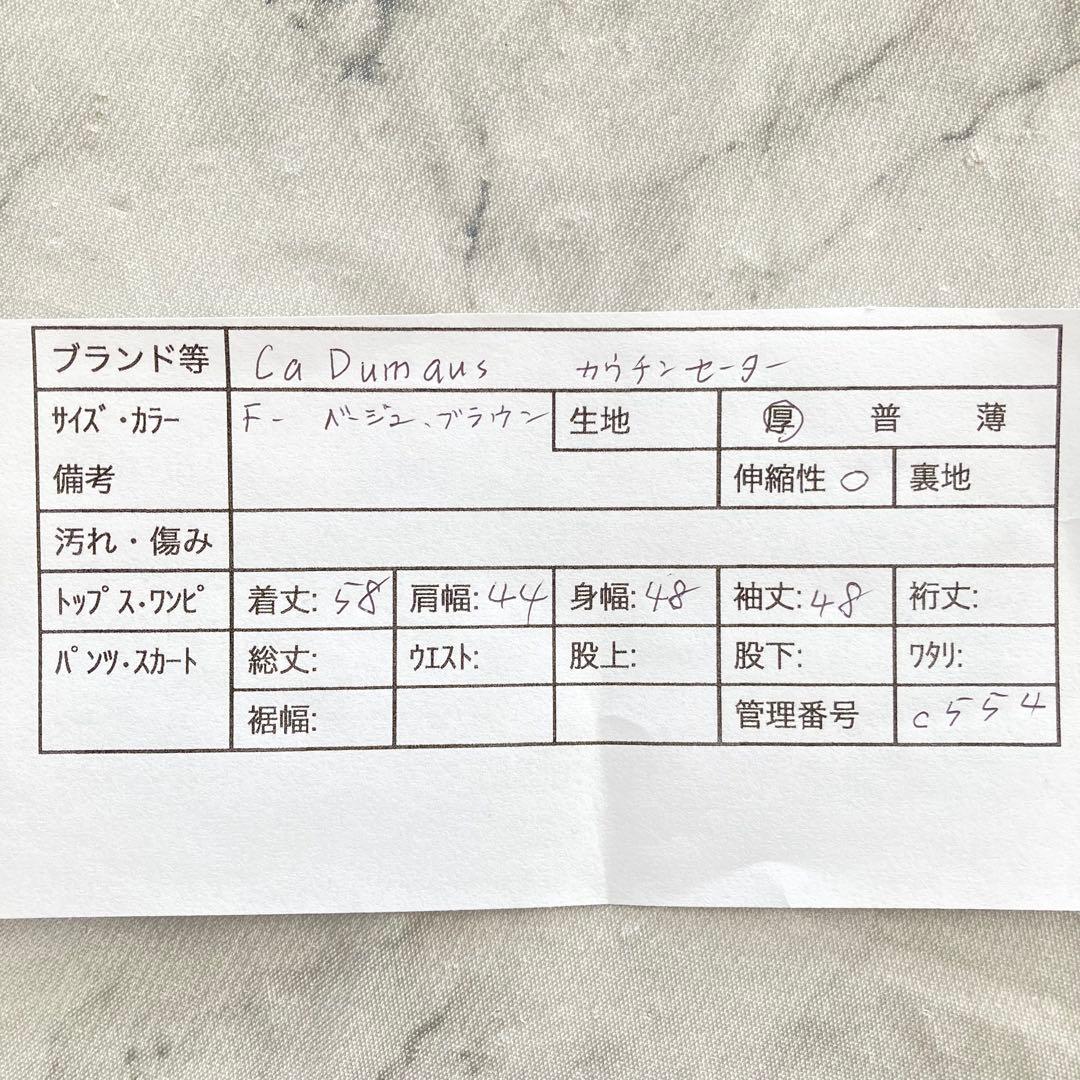 ブランド等 Ca Dumaus カウチンセーター
サイズ・カラー F- ベージュ、ブラウン 生地 厚 普 薄
備考 伸縮性 ○ 裏地
汚れ・傷み
トップス・ワンピ 着丈: 58 肩幅: 44 身幅: 48 袖丈: 48 裄丈:
パンツ・スカート 総丈: ウエスト: 股上: 股下: ワタリ:
裾幅: 管理番号 c554